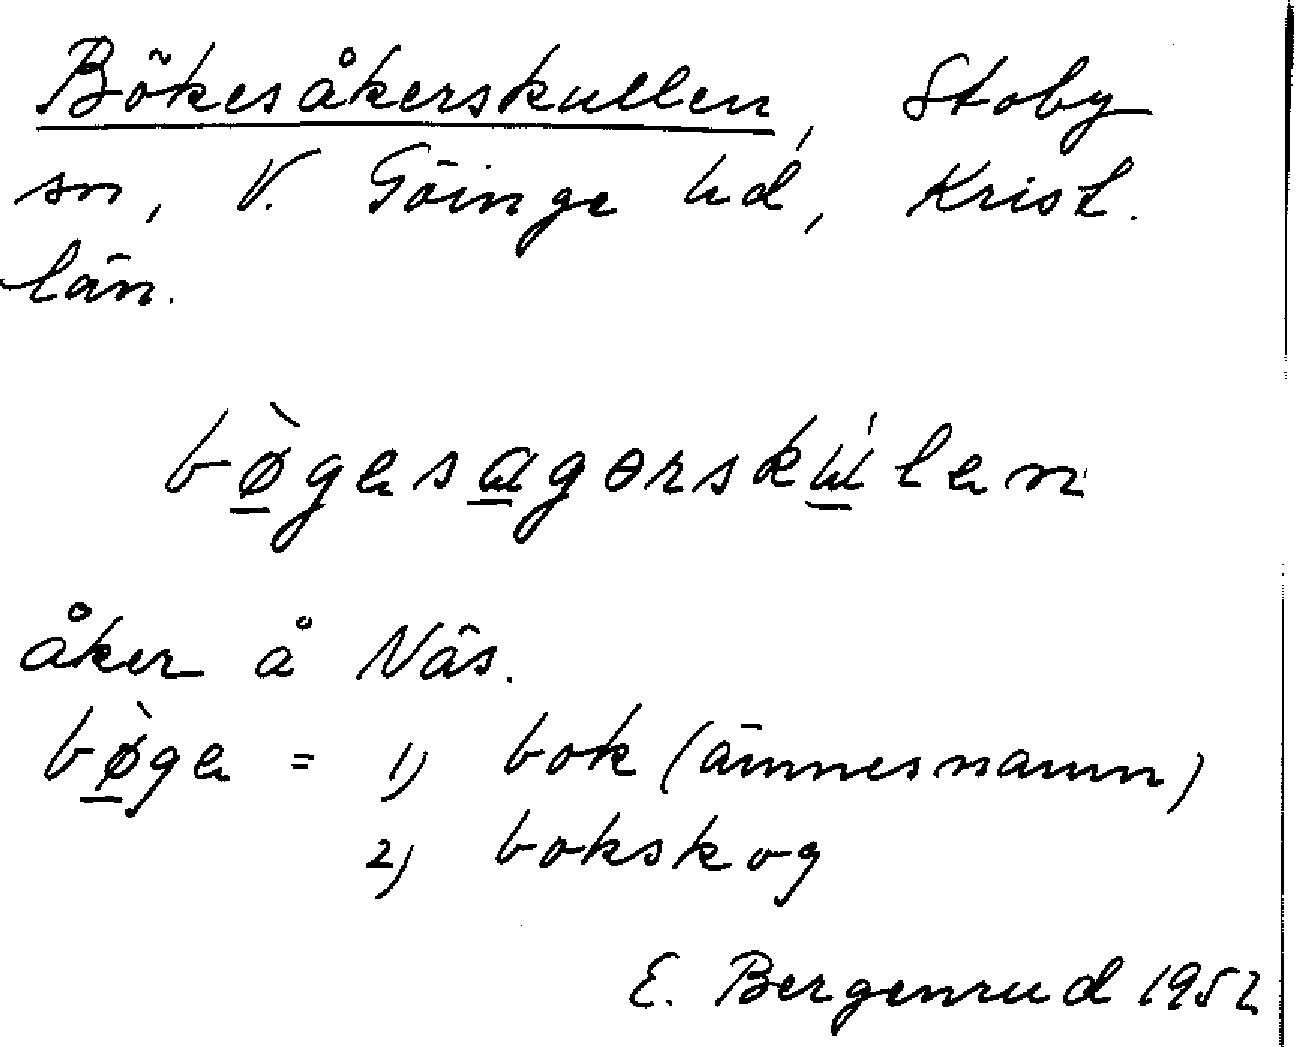 Bökesåkerskullen, Stoby
sn, V. Göinge hd, Krist.
län.
bø̀gesagərskúlen
åker å Näs.
bø̀ge = 1) bok (ämnesnamn)
2) bokskog
E. Bergenrud 1952